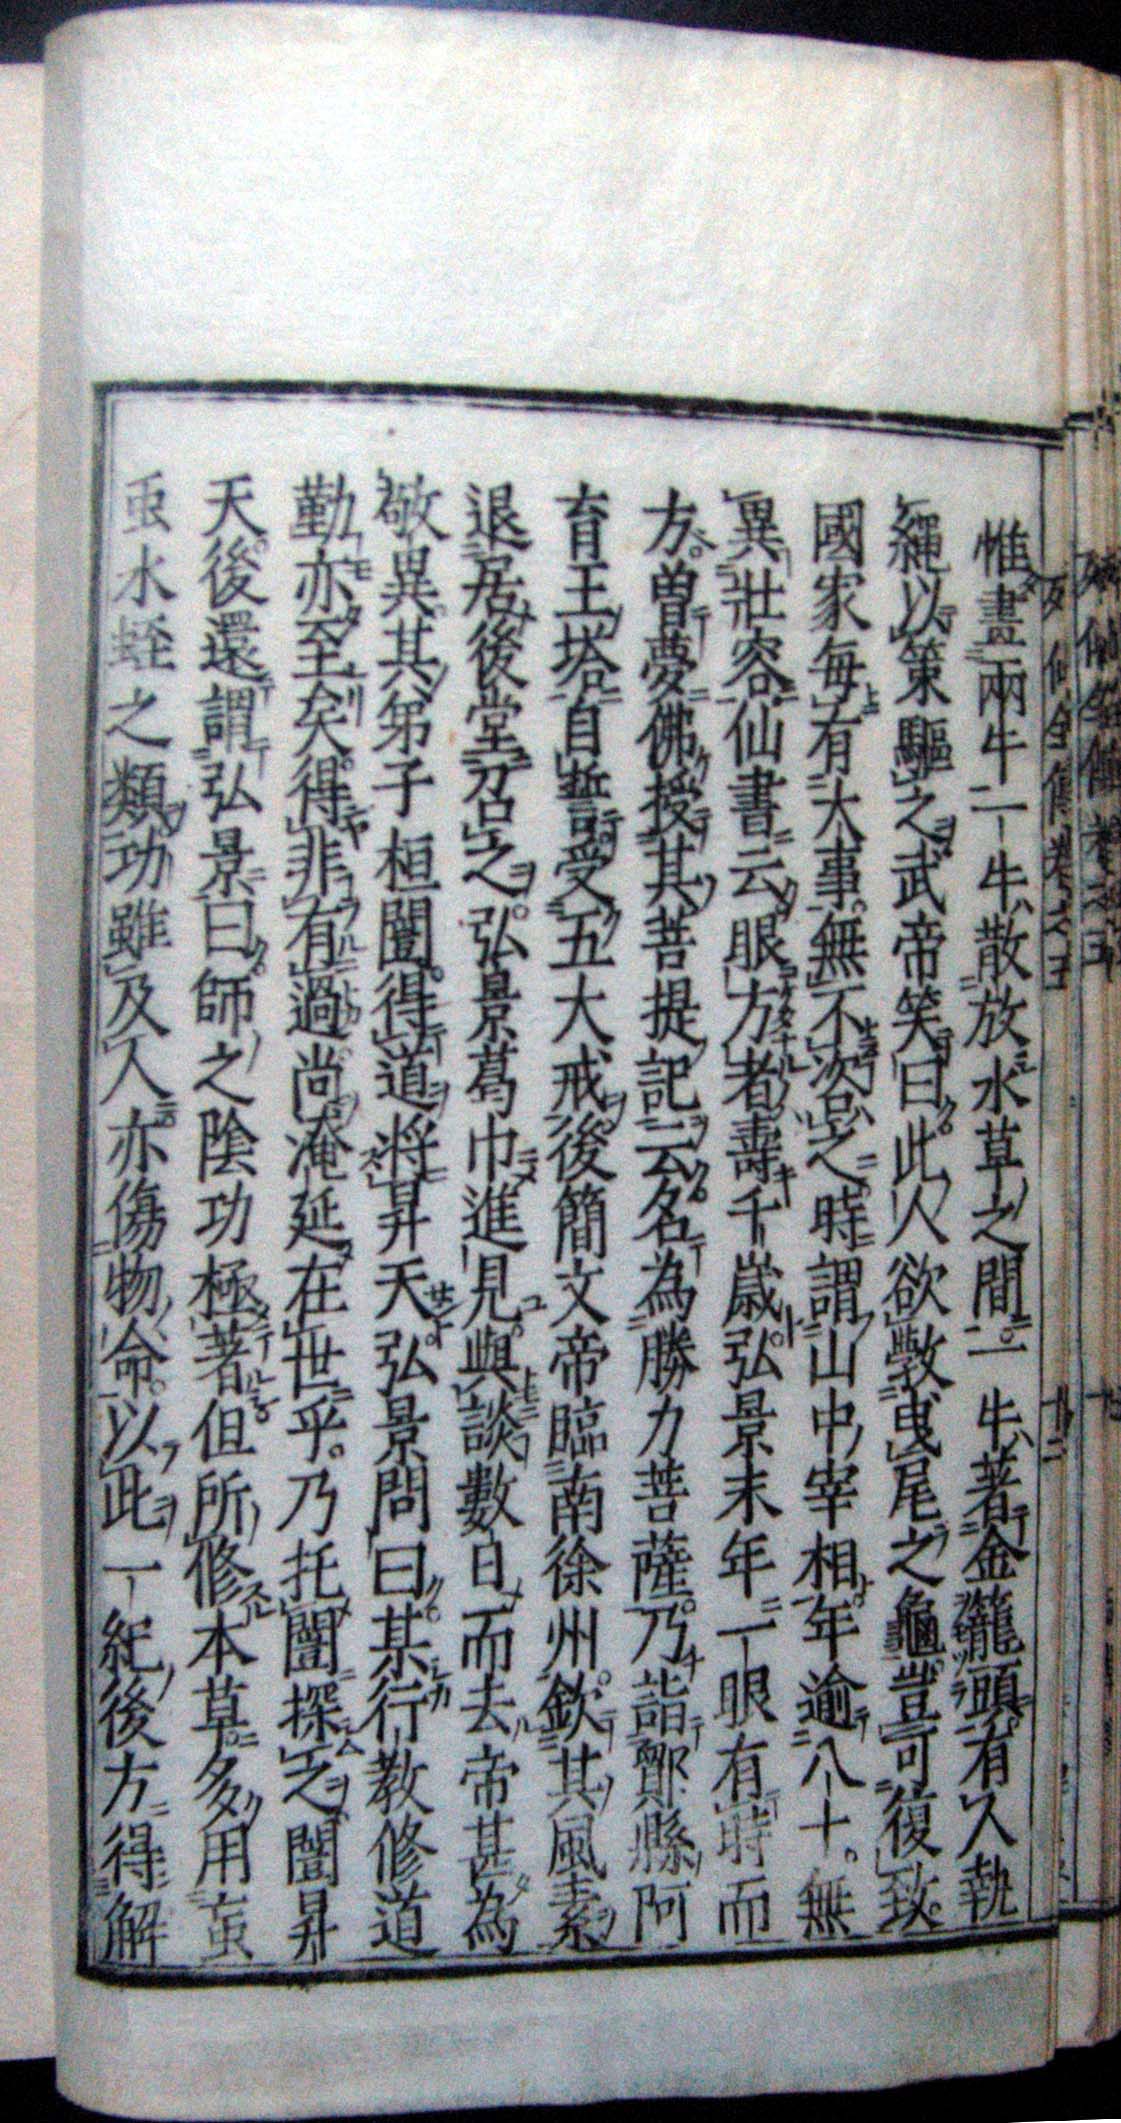 惟畫兩牛一牛散放水草之間一牛著金籠頭有人執
繩以策驅之武帝笑曰此人欲斆曳尾之龜豈可復致
國家毎有大事無不咨之時謂山中宰相年逾八十無
異壯容仙書云眼方者壽千歲弘景末年一眼有時而
方曾夢佛授其菩提記云名為勝力菩薩乃詣鄮縣阿
育王塔自誓受五大戒後簡文帝臨南徐州欽其風素
退居後堂召之弘景葛巾進見與談數日而去帝甚為
敬異其弟子桓闓得道將昇天弘景問曰某行教修道
勤亦至矣得非有過尚淹延在世乎乃托闓探之闓昇
天後還謂弘景曰師之陰功極著但所修本草多用䖟
䖟水蛭之類功雖及人亦傷物命以此一紀後方得解